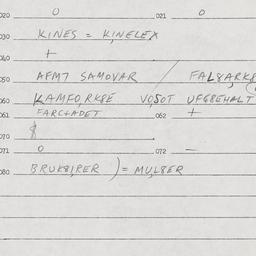 020 0 021 0
030 KINES = KINELEX
040 +
050 AFMT SAMOVAR / FALSARKS
060 KAMFORKSE VOSOT UFGBEHALT
061 FARC+ADET 062 +
070 $
071 0 072 —
080 BRUKSIRER ) = MULSER